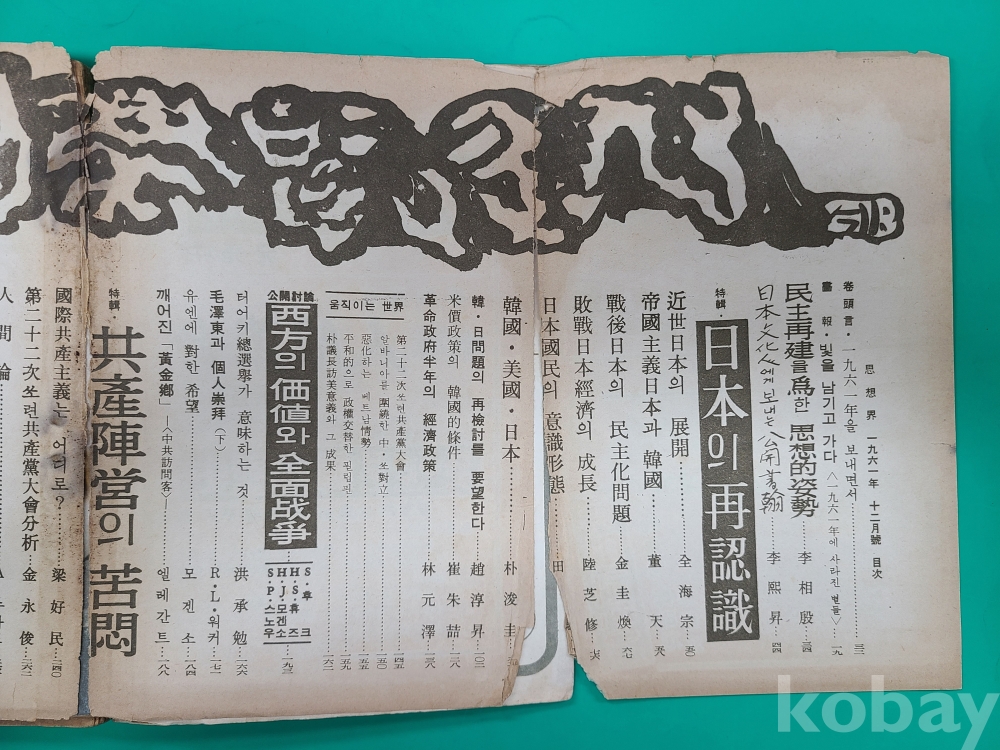 思想界 一九六一年 十二月號 目次
卷頭言·一九六一年을 보내면서
畫報·빛을 남기고 가다〈一九六一年에 사라진 별들〉 一九
民主再建을 爲한 思想的姿勢 李相殷
日本文化人에게 보내는 公開書翰 李熙昇
特輯·日本의 再認識
近世日本의 展開 全海宗
帝國主義日本과 韓國 董天
戰後日本의 民主化問題 金圭煥
敗戰日本經濟의 成長 陸芝修
日本國民의 意識形態 田
韓國·美國·日本 朴浚圭
韓·日問題의 再檢討를 要望한다 趙淳昇 一〇二
米價政策의 韓國的條件 崔朱喆 一一八
革命政府半年의 經濟政策 林元澤 一三八
움직이는 世界
第二十二次쏘련共產黨大會 一四五
알바니아를 圍繞한 中·쏘對立 一五〇
惡化하는 베트남情勢 一五五
平和的으로 政權交替한 필립핀 一五九
朴議長訪美意義와 그 成果 一六二
公開討論 西方의 価値와 全面战争 一九三
S·H·H·S
P·J·S
스·모·휴
노겐
우소즈크
터어키總選擧가 意味하는 것 洪承勉 一六六
毛澤東과 個人崇拜(下) R·L·워커 一七一
유엔에 對한 希望 모겐소 一八四
깨어진「黃金鄕」—〈中共訪問客〉— 엘레간트 一八八
特輯·共產陣営의 苦悶
國際共產主義는 어디로? 梁好民 二四〇
第二十二次쏘련共產黨大會分析 金永俊 二六二
人間論
GIB
kobay